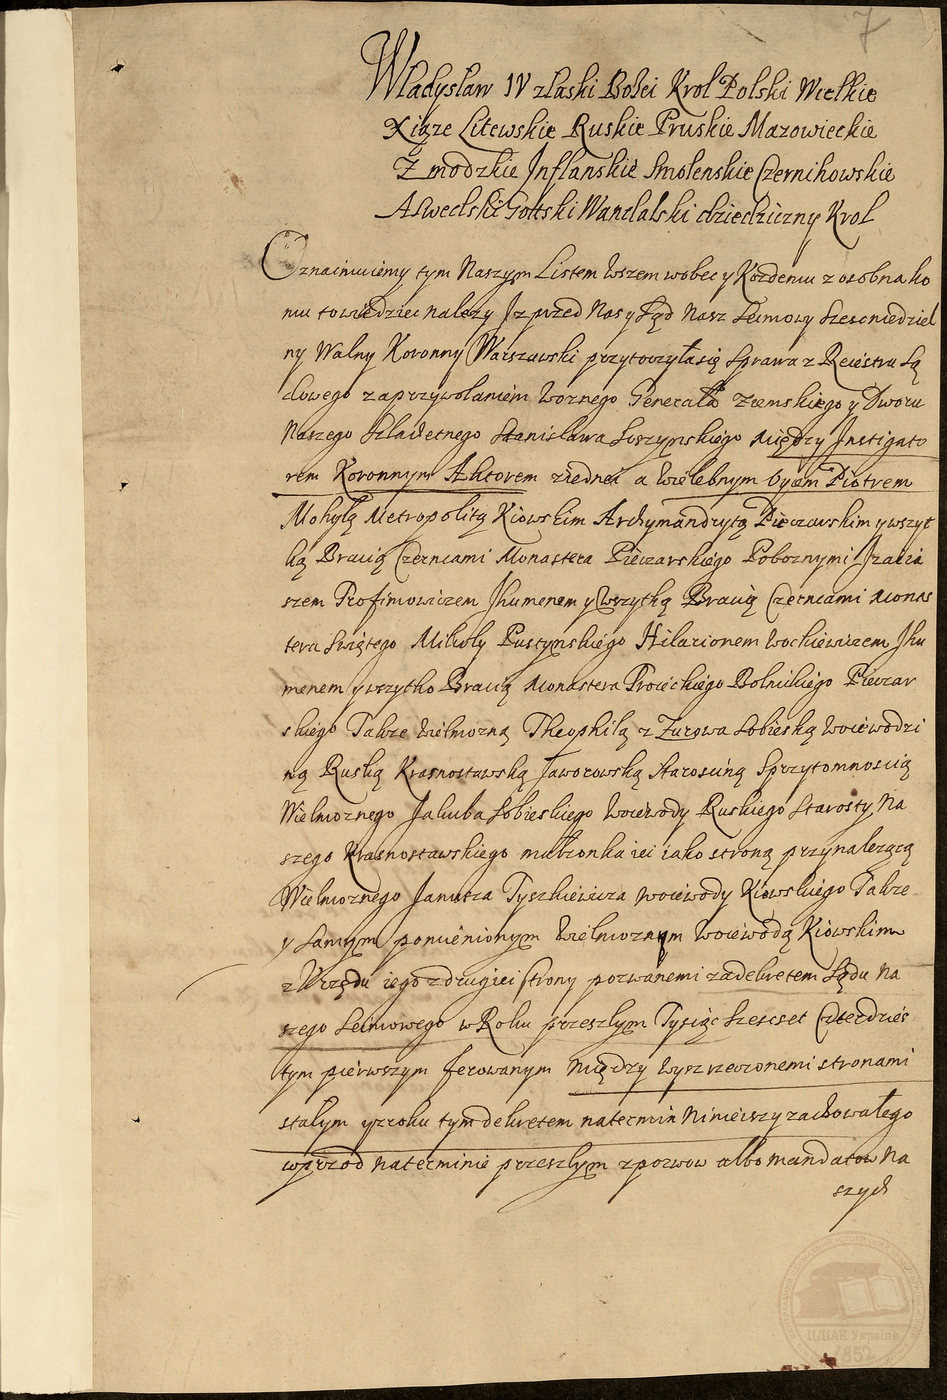 7
Władysław IV z łaski Bożei Krol Polski Wielkie
Xiąze Litewskie Ruskie Pruskie Mazowieckie
Zmodzkie Inflanskie Smolenskie Czernihowskie
A Swedski Gottski Wandalski dziedziczny Krol
Oznaimuiemy tym Naszym Listem wszem wobec y Kozdemu z osobna ko
mu to wiedziec nalezy Iz przed Nas y Sąd Nasz Seimowy Szescniedziel
ny Walny Koronny Warszawski przytoczyła się Sprawa z Reiestru Są
dowego zaprzywołaniem Woznego Generała Ziemskiego y Dworu
Naszego Szlachetnego Stanisława Soszynskiego między Instigato
rem Koronnym Aktorem ziednei a wielebnym Oycem Piotrem
Mohyłą Metropolitą Kiowskim Archymandrytą Pieczarskim y wszyt
ką Bracią Czerncami Monastera Pieczarskiego Poboznymi Izaia
szem Trofimowiczem Ihumenem y wszytką Bracią Czerncami Monas
tera Swiętego Mikoły Pustynskiego Hilarionem Ihu
menem y wszytko Bracią Monastera Troieckiego Bolnickiego Pieczar
skiego Takze wielmozną Theophilą z Zurowa Sobieską woiewodzi
ną Ruską Krasnostawską Jaworowską Starosciną Sprzytomnoscią
Wielmoznego Jakuba Sobieskiego woiewody Ruskiego Starosty Na
szego Krasnostawskiego małzonka iei iako stroną przynalezącą
Wielmoznego Janusza Tyszkiewicza woiewody Kiowskiego Takze
y samym pomienionym wielmoznym woiewodą Kiowskim
z Urzędu iego zdrugiei strony pozwanemi zadekretem Sądu Na
szego Seimowego w Roku przeszłym Tysiąc Szescset Czterdzies
tym pierwszym ferowanym między wyszrzeczonemi stronami
stałym yzroku tym dekretem natermin Ninieiszy zachowałego
wprzod naterminie przeszłym zpozwow albo mandatow Na
szych
ЦДІАК України
1852